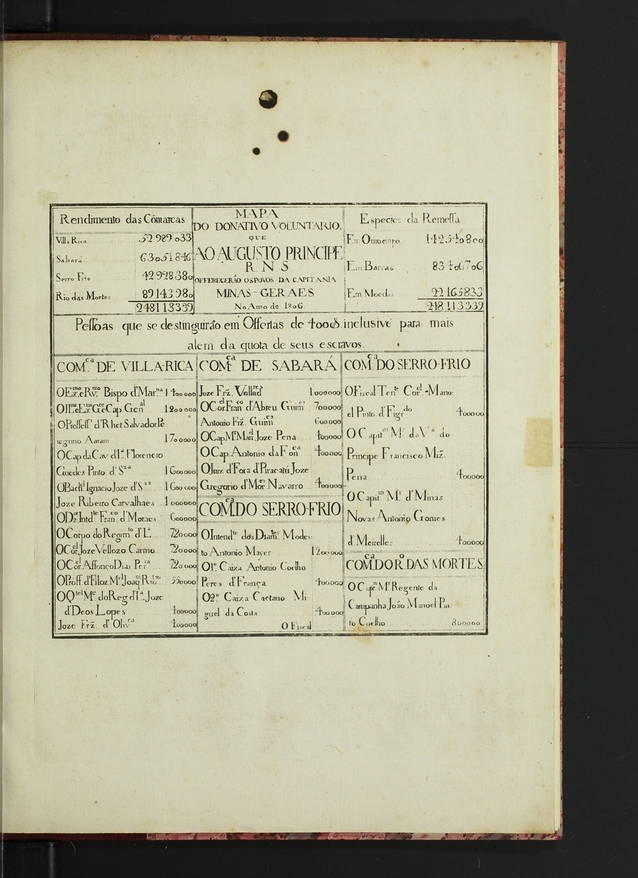 Rendimento das Cómarcas
Villa Rica 52 989 033
Sabará 63051846
Serro Frio 42928380
Rio das Mortes 89143980
248113339
MAPA
DO DONATIVO VOLUNTARIO,
QUE
AO AUGUSTO PRINCIPE
R N S
OFFERECERÃO OS POVOS DA CAPITANIA
MINAS-GERAES
No Anno de 1806.
Especies da Remessa
Em Ouro empó 142540800
Em Barras 83406706
Em Moeda 22165833
248.113339
Pessoas que se destinguirão em Offertas de 400$ inclusive para mais
alem da quota de seus escravos.
COM.ca DE VILLA-RICA
O Ex.mo e Rv.mo Bispo d'Mar.na 1400000
O Il.mo Ex.mo Gor. Cap. Gen.al 1200000
O Profess.r d'Rhet Salvador Pe
regrino Aaram 1700000
O Cap. da Cav. d'L.ª Florencio
Guedes Pinto d'S.za 1600000
O Bach.l Ignacio Joze d'S.za 1600000
Joze Ribeiro Carvalhaes 1000000
O D.r Intd.te Fran.co d'Moraes 600000
O Corpo do Regim.to d'L.ª 720000
O C.el Joze Vellozo Carmo 720000
O C.el Affonço Dias Per.ra 720000
O Proff d'Filoz. M.el Joaq.m Rib.ro 550000
O Q.tel M.e do Reg. d'L.ª Joze
d'Deos Lopes 400000
Joze Frz. d'Oliv.ra 400000
COM.ca DE SABARÁ
Joze Frz. Vallad.es 1000000
O C.el Fran.co d'Abreu Guim.es 700000
Antonio Frz. Guim.es 600000
O Cap. M. M.el Joze Pena 400000
O Cap. Antonio da Fon.ca 400000
O Juiz d'Fora d'Piracatú Joze
Gregorio d'Mor. Navarro 400000
COM.ca DO SERRO-FRIO
O Intend.te dos Diam.es Modes-
to Antonio Mayer 1200000
O 1.º Caixa Antonio Coelho
Peres d'França 400000
O 2.º Caixa Caetano Mi-
guel da Costa 400000
O Fiscal
COM.ca DO SERRO-FRIO
O Fiscal Ten.te Cor.el Mano-
el Pinto d'Fig.do 400000
O Capit.m M.r da V.ª do
Principe Francisco Miz.
Pena 400000
O Capit.m M.r d'Minas
Novas Antonio Gomes
d'Meirelles 400000
COM.ca DO R.º DAS MORTES
O Cap.m M.r Regente da
Campanha João Manoel Pin
to Coelho 800000